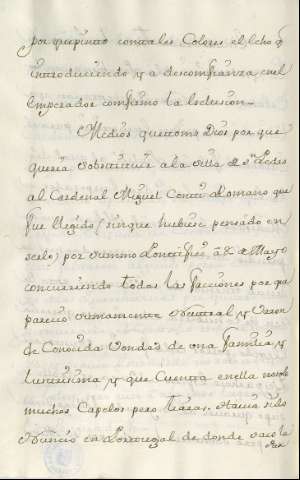 por quepinto contales Colores el hcho q̃
introduciendo ya desconfianza en el
Emperador confirmo la hoclusion.
Medios que tomo Dios por que
queria substituir a la silla de Sn Pedro
al Cardenal Miguel Conti Romano que
fue Elegido (sin que hubiese pensado en
serlo) por summo Pontifice a 8 de Mayo
concurriendo todas las facciones por que
parecio sumamente Neutral y Varon
de Conocida Bondad de una familia
Ilustrisima y que Cuenta en ella no solo
muchos Capelos pero tiaras. Havia sido
Nuncio en Portugal de donde saco la